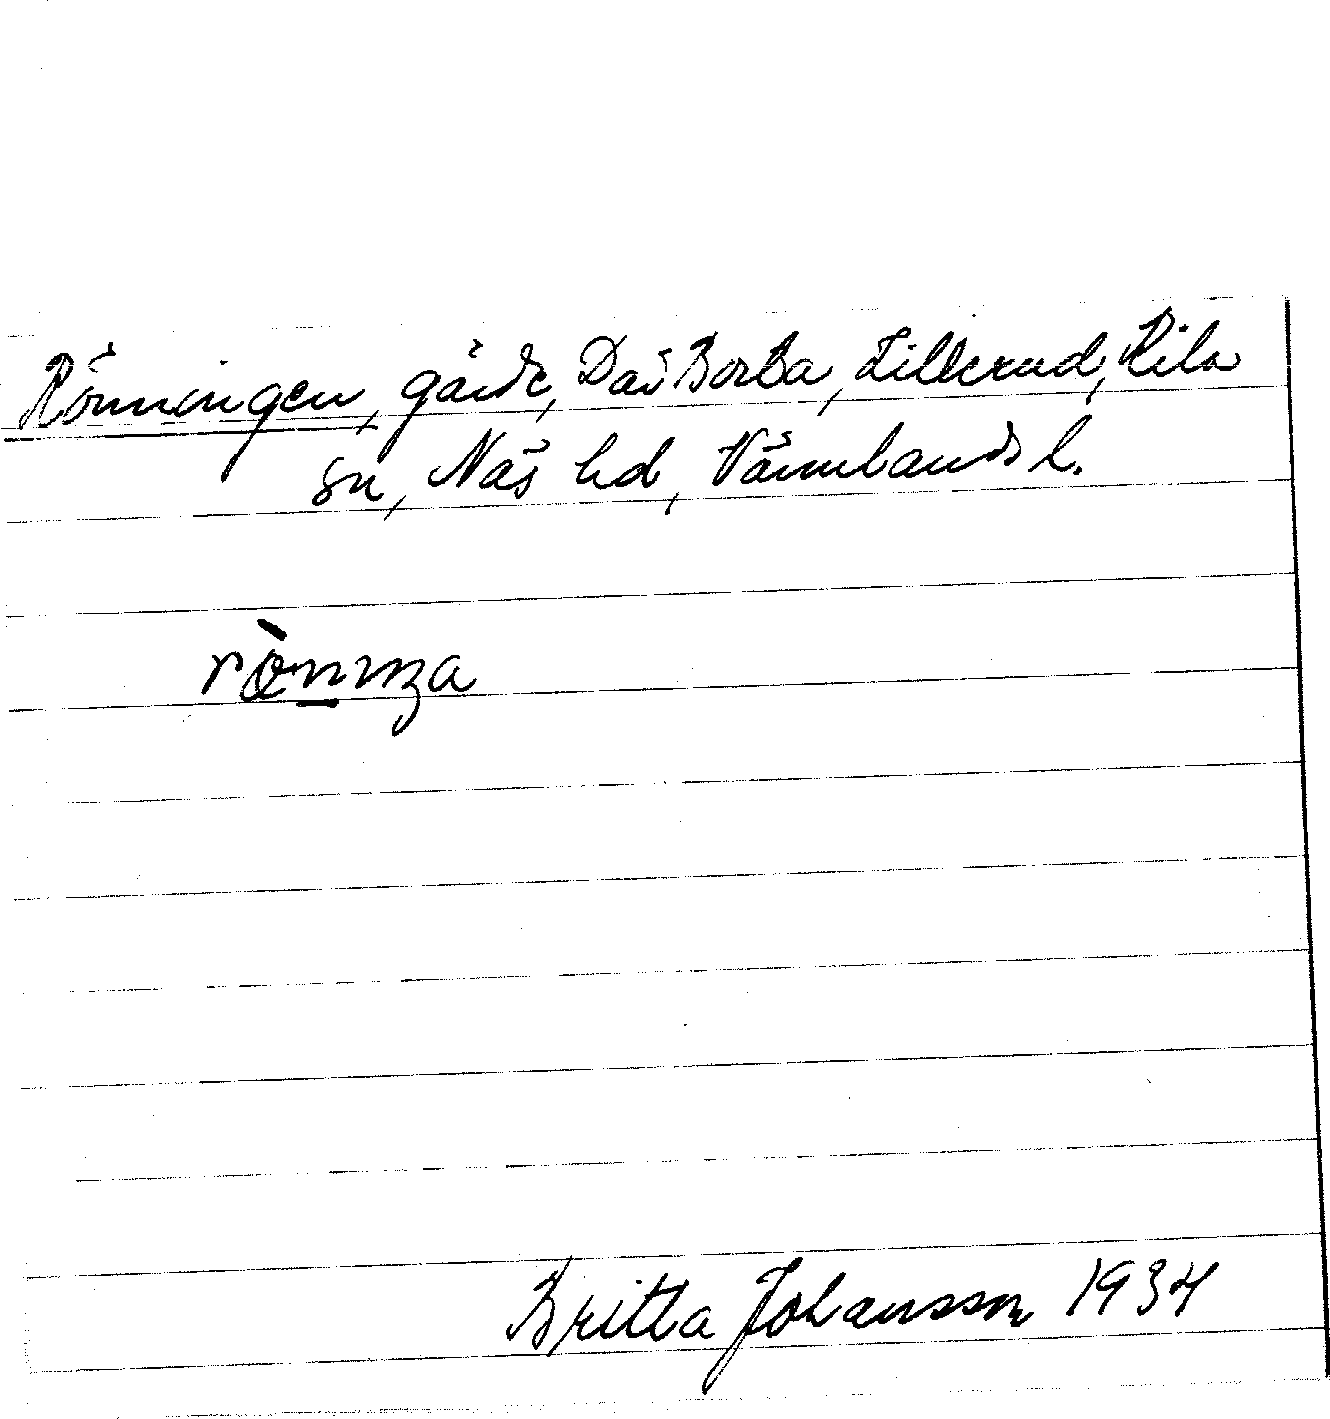 Rönningen, gärde, Daş Borba, Lillerud, Kila
sn, Näs hd, Värmlands l.
rò̱nnıŋa
Britta Johansson 1934